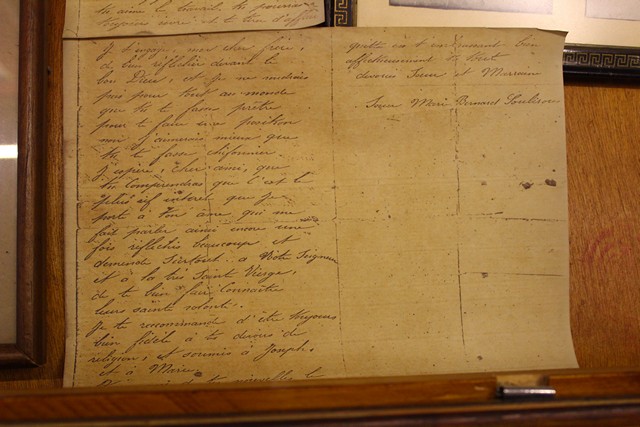 tu aime le travail, tu pourrais
toujours vivre et te tirer d'affaire
Je t'engage, mon cher frère,
de bien réflechir devant le
bon Dieu, car je ne voudrais
pas pour tout au monde
que tu te fasse prêtre
pour te faire une position
non j'aimerais mieux que
tu te fasse chifonnier.
J'espère, cher ami, que
tu comprendras que c'est le
plus vif interet que je
port à ton ame qui me
fait parler ainsi encore une
fois réflechis beaucoup et
demande surtout à Notre Seigneur
et à la très Saint Vierge,
de te bien faire Connaitre
leurs sainte volonté.
Je te recommande d'être toujours
bien fidel à tes devoirs de
religion, et soumis à Joseph,
et à Marie
quitte en t'embrassant bien
affectueusement ta tout
devouée Sœur et Marraine
Sœur Marie Bernard Soubirous